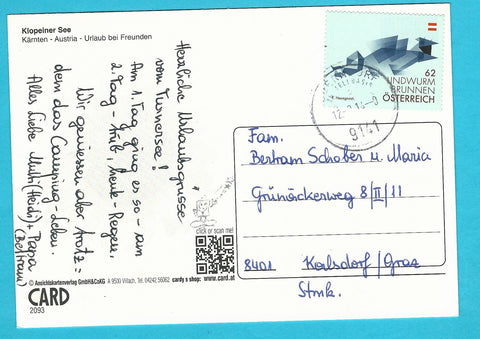 Klopeiner See
Kärnten - Austria - Urlaub bei Freunden
Herzliche Urlaubsgrüsse
vom Turnersee!
Am 1. Tag ging es so - am
2. Tag - trüb, heute - Regen.
Wir geniessen aber trotz=
dem das Camping-Leben.
Alles Liebe Mutti (Heidi) + Papa
(Bertram)
62
LINDWURM
BRUNNEN
ÖSTERREICH
9141
Fam.
Bertram Schober u. Maria
Grünäckerweg 8/II/11
8401 Kalsdorf/Graz
Stmk.
click or scan me!
© Ansichtskartenverlag GmbH&CoKG A 9500 Villach, Tel. 04242 56062 cardy s shop: www.card.at
CARD
2093